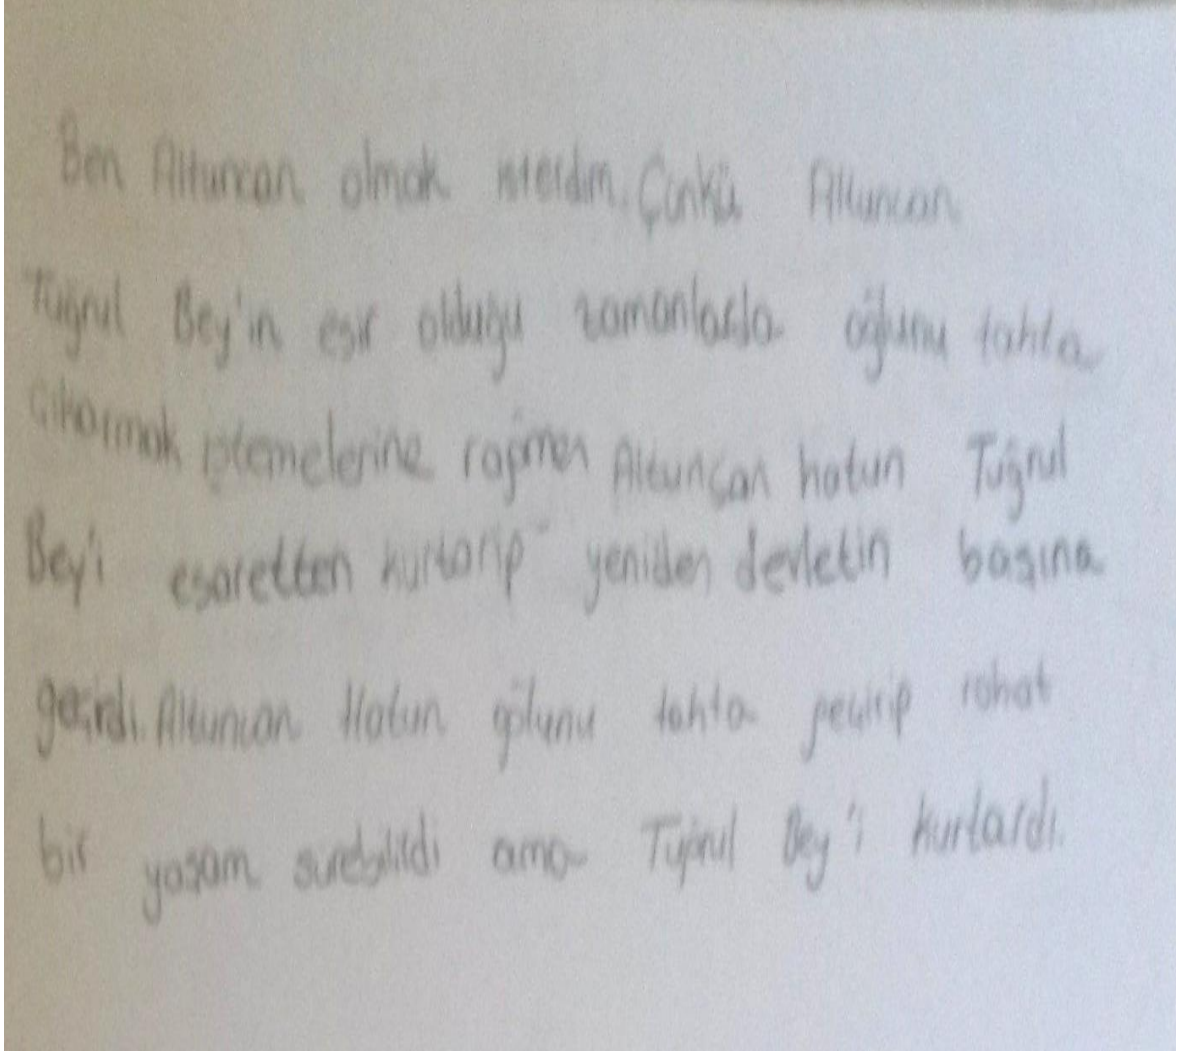 Ben Altuncan olmak isterdim. Çünkü Altuncan
Tuğrul Bey'in esir olduğu zamanlarda oğlunu tahta
çıkarmak istemelerine rağmen Altunçan hatun Tuğrul
Bey'i esaretten kurtarıp yeniden devletin başına
geçirdi. Altuncan Hatun oğlunu tahta geçirip rahat
bir yaşam surebilirdi ama Tuğrul Bey'i kurtardı.